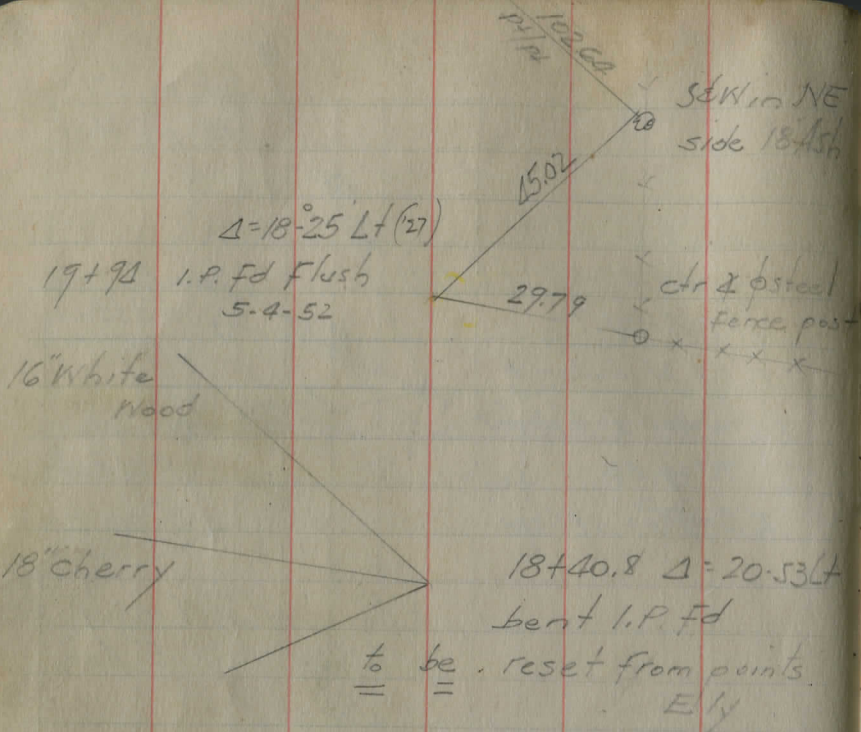 102.64
pt/pt
S&W in NE
side 18" Ash
45.02
Δ=18°-25' Lt ('27)
19+94 I.P. Fd Flush
5-4-52
29.79
ctr steel
fence post
16" White
Wood
18" Cherry
18+40.8 Δ=20-53Lt
bent I.P. Fd
to be . reset from points
Ely